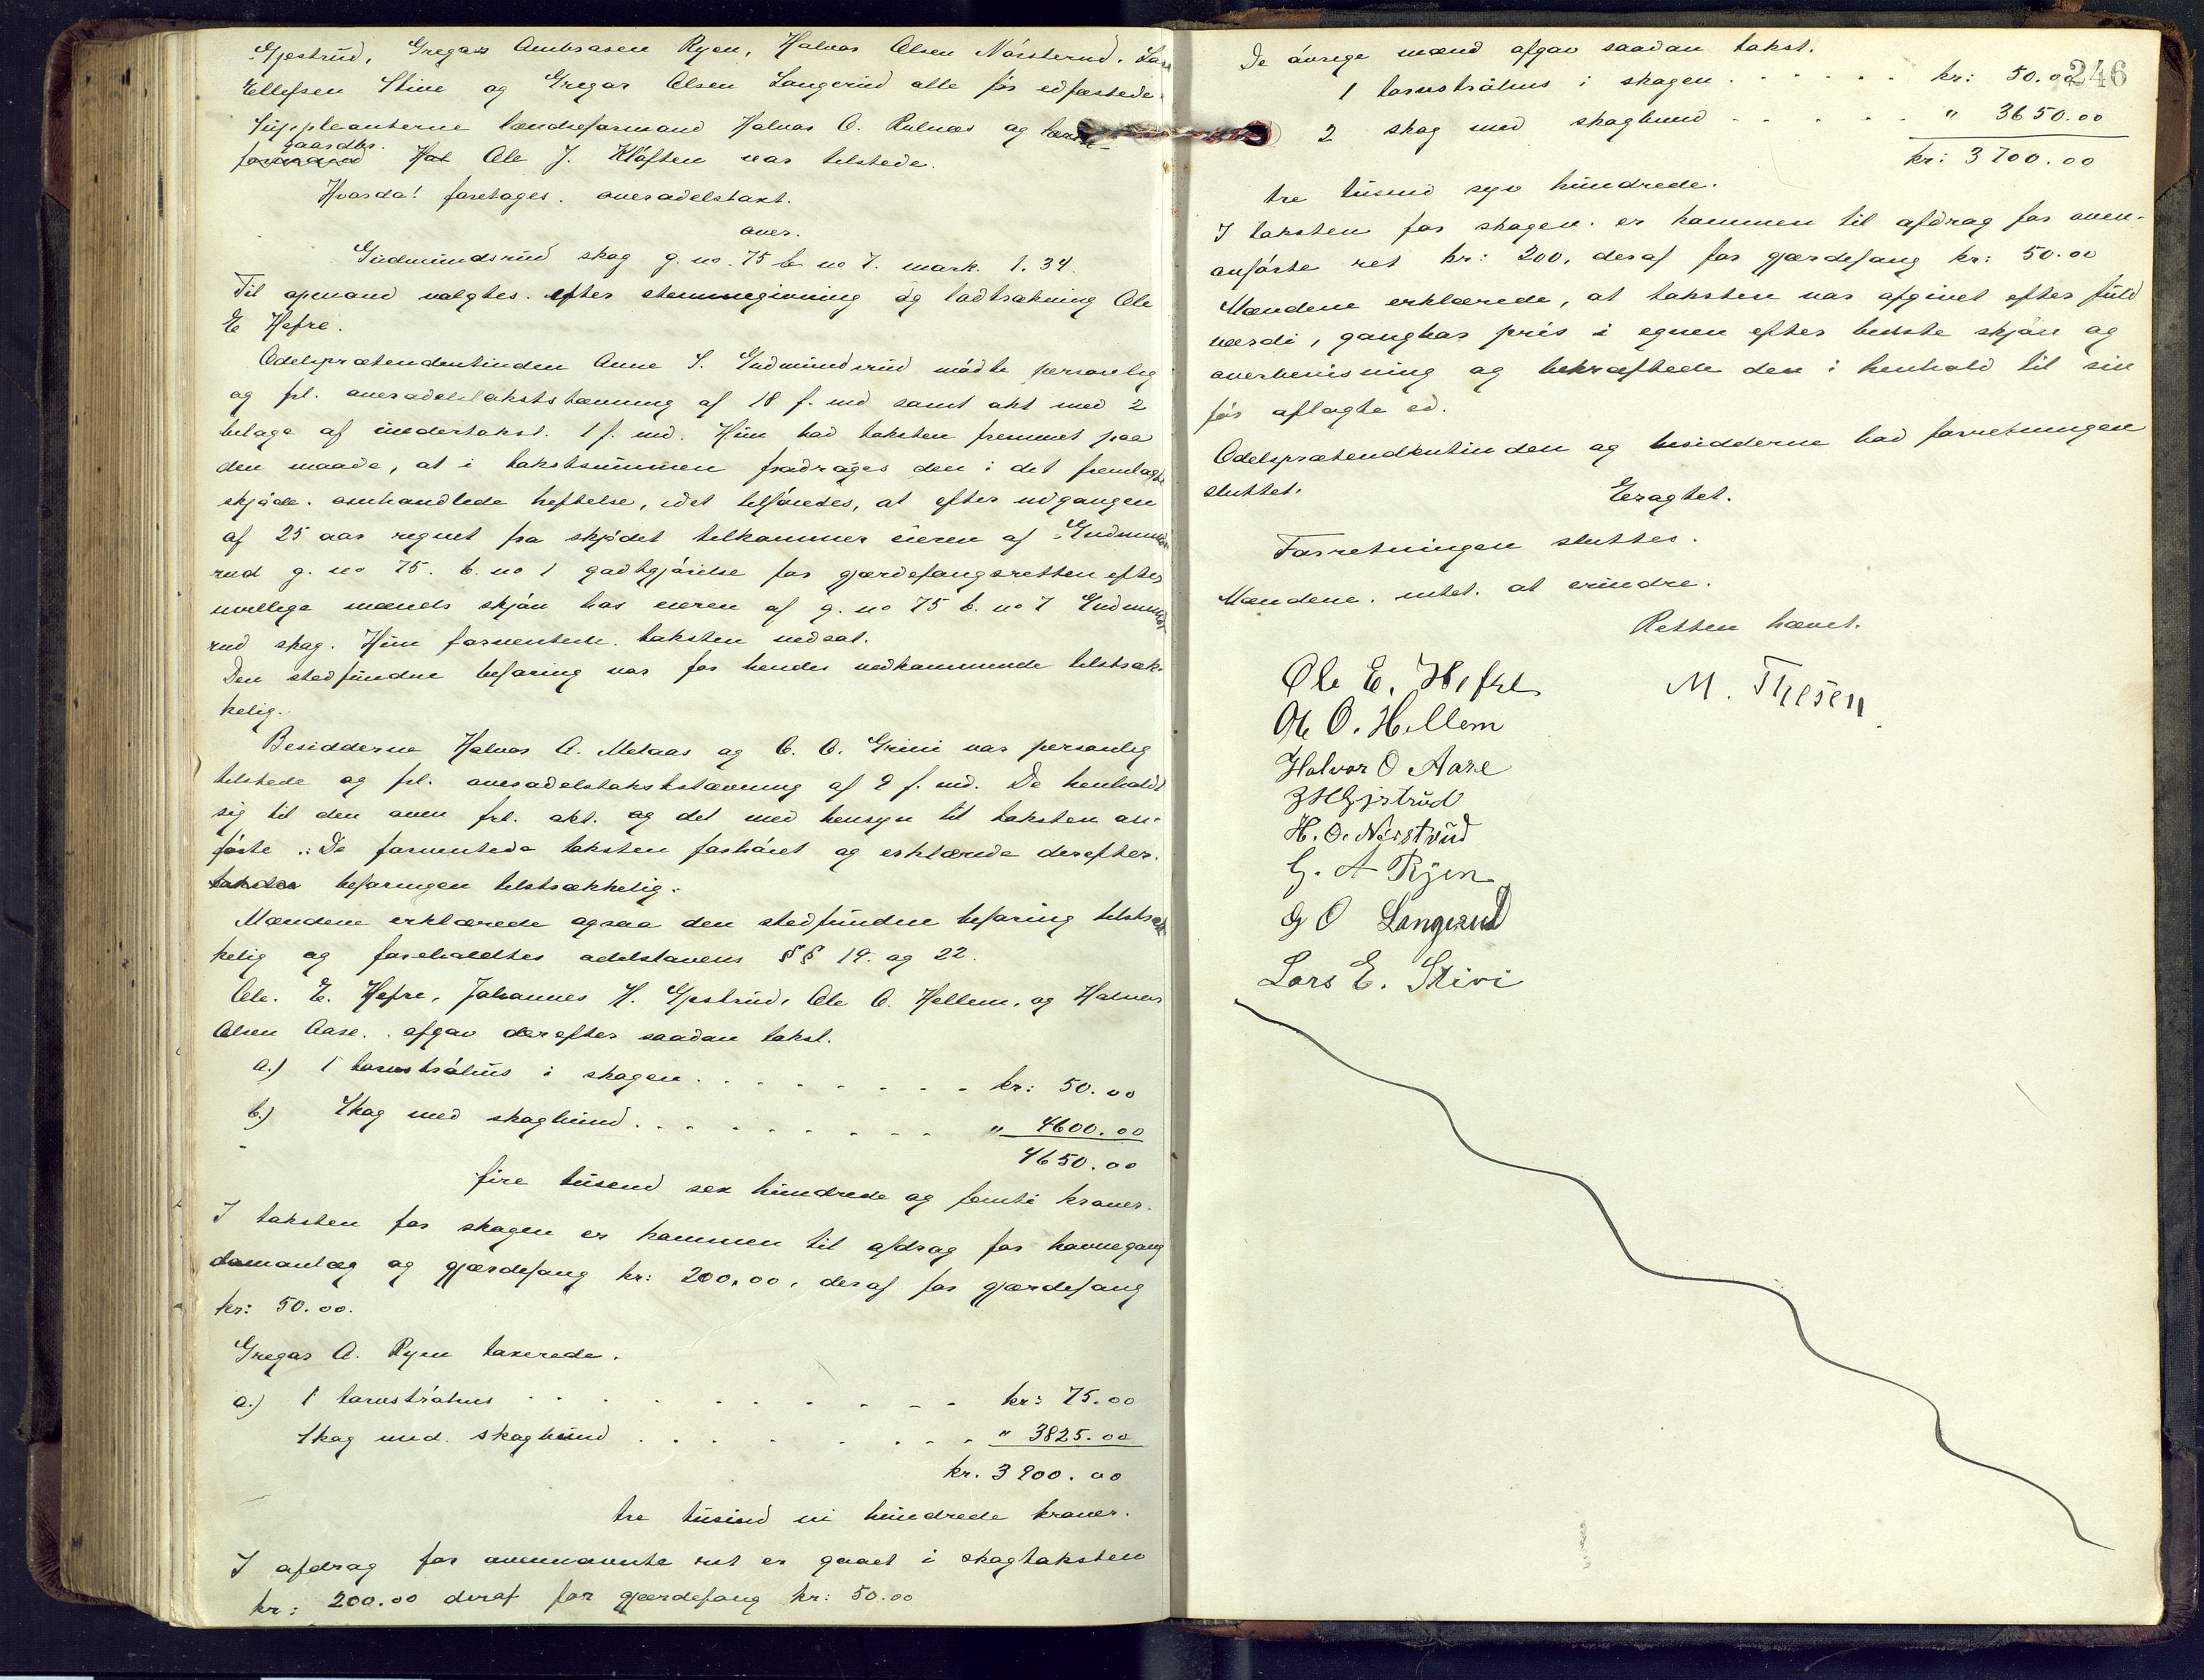 Gjestrud, Gregar Ambrosen Ryen, Halvor Olsen Nørsterud, Lars
Ellefsen Stive og Gregar Olsen Langerud alle før edfæstede.
Suppleanterne lændseformand Halvor O. Rulnæs og
gaardbr.
Ole J. Kløften var tilstede.
Hvorda! foretages. overodelstaxt.
over.
Gudmundsrud skog g. no. 75 b no 7. mark. 1.34.
Til opmand valgtes. efter stemmegivning og lodtrækning Ole
E Hefre.
Odelsprætendentinden Anne S. Gudmundsrud mødte personlig
og frl. overodelstakststævning af 18 f. md samt akt med 2
bilage af undertakst. 1 f. md. Hun bad taksten fremmet paa
den maade, at i takstsummen fradrages den i det fremlagte
skjøde. omhandlede heftelse, idet tilføiedes, at efter udgangen
af 25 aar regnet fra skjødet tilkommer eieren af Gudmunds-
rud g. no 75. b. no 1 godtgjørelse for gjærdefangsretten efter
uvillige mænds skjøn hos eieren af g. no 75 b. no 7 Gudmunds-
rud skog. Hun formentede taksten nedsat.
Den stedfundne befaring var for hendes vedkommende tilstræk-
kelig.
Besidderne Halvor A. Melaas og O. O. Grini var personlig
tilstede og frl. overodelstakststævning af 9 f. md. De henholdt
sig til den oven frl. akt. og det med hensyn til taksten an-
førte .: De formentede taksten forhøiet og erklærede derefter.
befaringen tilstrækkelig.
Mændene erklærede ogsaa den stedfundne befaring tilstræk-
kelig og foreholdtes odelslovens §§ 19. og 22.
Ole. E. Hefre, Johannes H. Gjestrud, Ole O. Hellem, og Halvor
Olsen Aase. afgav derefter saadan takst.
a.) 1 torvstrøhus i skogen. . . . . . . . kr: 50.00
b.) Skog med skogbund. . . . . . . . " 4600.00
4650.00
fire tusend sex hundrede og femti kroner.
I taksten for skogen er kommen til afdrag for havnegang
damanlæg og gjærdefang kr: 200.00, deraf for gjærdefang
kr: 50.00.
Gregar A. Ryen taxerede.
a.) 1 torvstrøhus . . . . . . . . kr: 75.00
Skog med. skogbund . . . . . . . " 3825.00
kr. 3900.00
tre tusind ni hundrede kroner.
I afdrag for ovennævnte ret er gaaet i skogtaksten
kr: 200.00 deraf for gjærdefang kr: 50.00
246
De øvrige mænd afgav saadan takst.
1 torvstrøhus i skogen . . . . . . kr: 50.00
2 skog med skogbund . . . . . " 3650.00
kr: 3700.00
tre tusend syv hundrede.
I taksten for skogen. er kommen til afdrag for oven-
anførte ret kr: 200, deraf for gjærdefang kr: 50.00
Mændene erklærede, at taksten var afgivet efter fuld
værdi, gangbar pris i egnen efter bedste skjøn og
overbevisning og bekræftede den i henhold til sin
før aflagte ed.
Odelsprætendentinden og besidderne bad forretningen
sluttet.
Eragtet.
Forretningen sluttes.
Mændene. intet. at erindre.
Retten hævet.
Ole E. Hefre M. Thesen
Ole O. Hellem
Halvor O Aase
J H Gjestrud
H. O. Nørstrud
G. A Ryen
G O Langerud
Lars E. Stivi